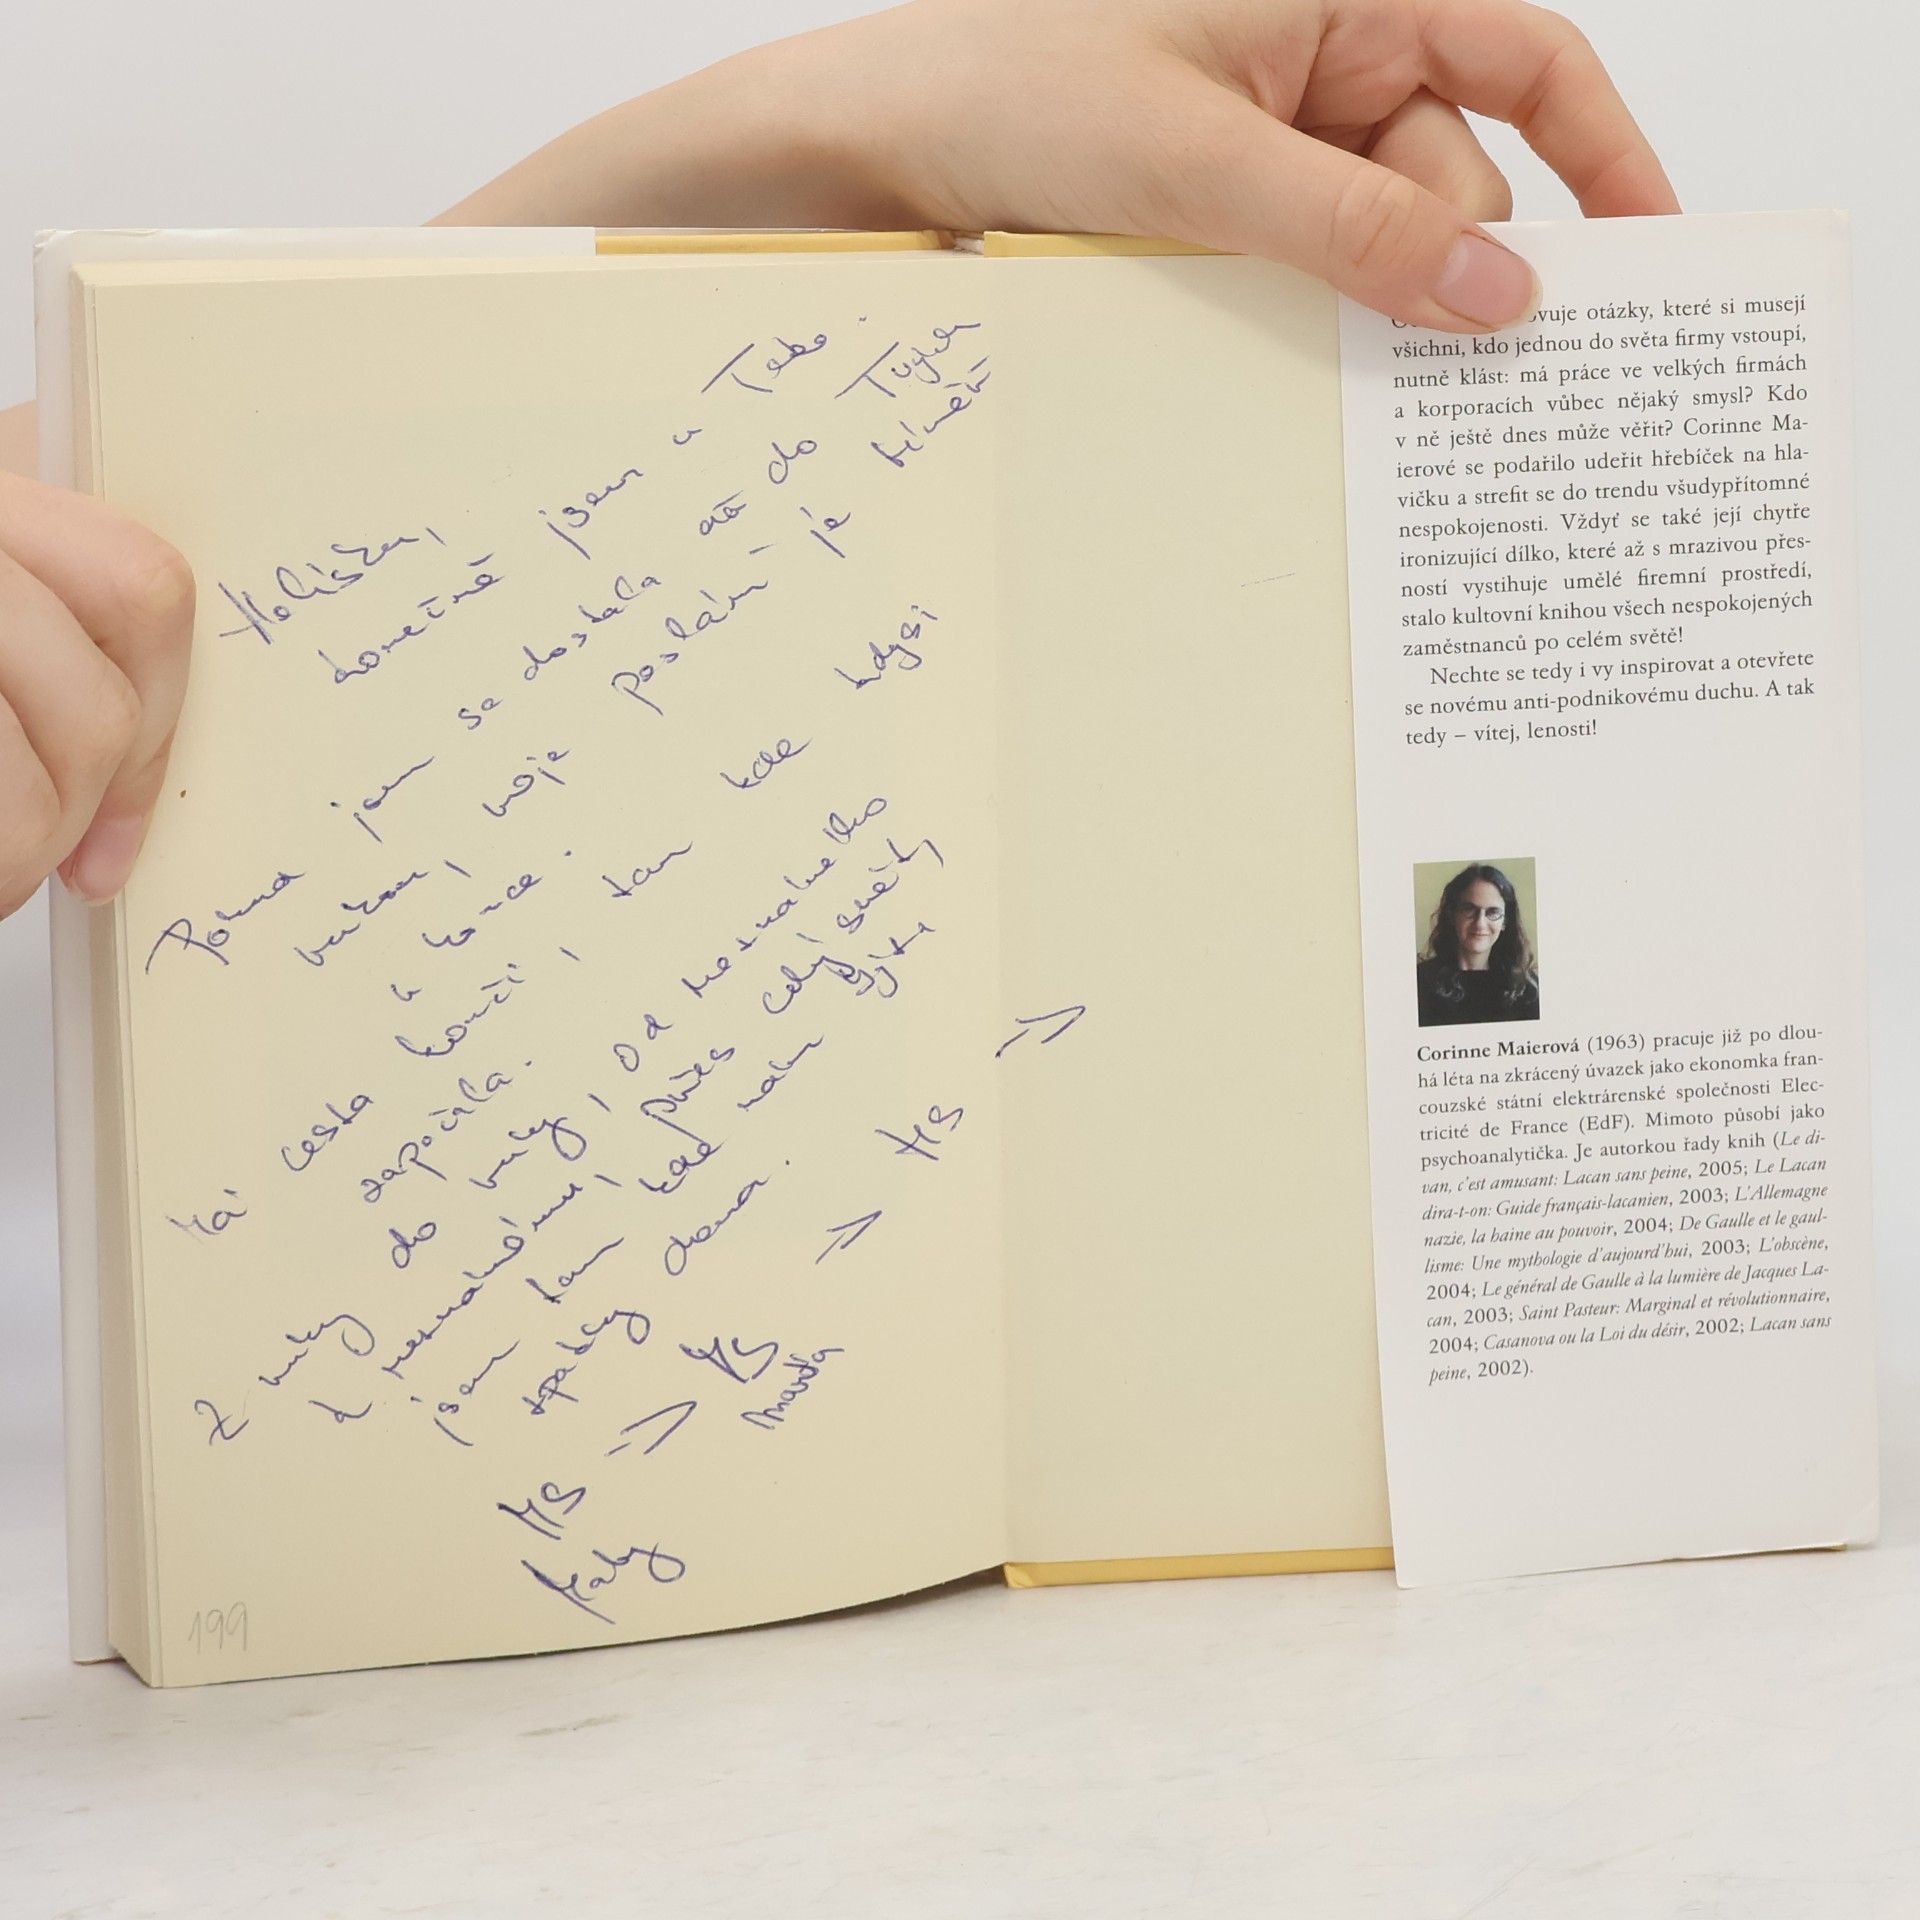 konečně jsem u Tebe.
Pokud jsem se dostala až do Tvých
rukou, moje poslání je téměř
u konce.
Má cesta končí tam kde kdysi
započala.
Z ruky do ruky, od neznámého
k neznámému, přes celý svět,
jsem tam kde mám být a
zpátky doma.
HS
HS
HS
Marta
199
ovuje otázky, které si musejí
všichni, kdo jednou do světa firmy vstoupí,
nutně klást: má práce ve velkých firmách
a korporacích vůbec nějaký smysl? Kdo
v ně ještě dnes může věřit? Corinne Ma-
ierové se podařilo udeřit hřebíček na hla-
vičku a strefit se do trendu všudypřítomné
nespokojenosti. Vždyť se také její chytře
ironizující dílko, které až s mrazivou přes-
ností vystihuje umělé firemní prostředí,
stalo kultovní knihou všech nespokojených
zaměstnanců po celém světě!
Nechte se tedy i vy inspirovat a otevřete
se novému anti-podnikovému duchu. A tak
tedy – vítej, lenosti!
Corinne Maierová (1963) pracuje již po dlou-
há léta na zkrácený úvazek jako ekonomka fran-
couzské státní elektrárenské společnosti Elec-
tricité de France (EdF). Mimoto působí jako
psychoanalytička. Je autorkou řady knih (Le di-
van, c'est amusant: Lacan sans peine, 2005; Le Lacan
dira-t-on: Guide français-lacanien, 2003; L'Allemagne
nazie, la haine au pouvoir, 2004; De Gaulle et le gaul-
lisme: Une mythologie d'aujourd'hui, 2003; L'obscène,
2004; Le général de Gaulle à la lumière de Jacques La-
can, 2003; Saint Pasteur: Marginal et révolutionnaire,
2004; Casanova ou la Loi du désir, 2002; Lacan sans
peine, 2002).